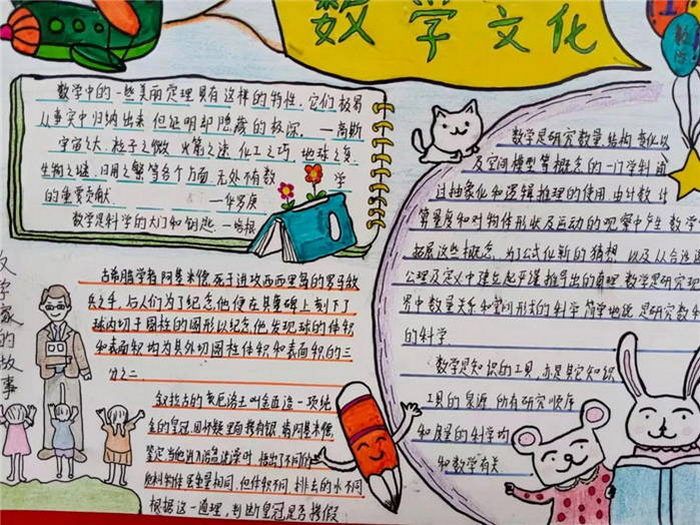 数学文化
数学中的一些美丽定理具有这样的特性:它们极易
从事实中归纳出来,但证明却隐藏的极深。 —高斯
宇宙之大,粒子之微,火箭之速,化工之巧,地球之变,
生物之谜,日用之繁等各个方面,无处不有数学
的重要贡献. —华罗庚
数学是科学的大门和钥匙.—培根
数学家的故事
古希腊学者阿基米德死于进攻西西里岛的罗马敌
兵之手,人们为了纪念他便在其墓碑上刻下了
球内切于圆柱的图形以纪念他发现球的体积
和表面积均为其外切圆柱体积和表面积的三
分之二
叙拉古的亥厄洛王叫金匠造一顶纯
金的皇冠,因怀疑里面掺有银,请阿基米德
鉴定。当他进入浴盆洗澡时
原料物体虽重量相同,但体积不同,排去的水不同
根据这一道理,判断皇冠是否掺假
数学是研究数量、结构、变化以
及空间模型等概念的一门学科,通
过抽象化和逻辑推理的使用,由计数、计
算、量度和对物体形状及运动的观察中产生,数学
拓展这些概念,为了公式化新的猜想以及从合适选
公理及定义中建立起严谨推导出的真理,数学是研究现
界中数量关系和空间形式的科学,简单地说,是研究数和
的科学
数学是知识的工具,亦是其它知识
工具的泉源,所有研究顺序
和度量的科学均
和数学有关